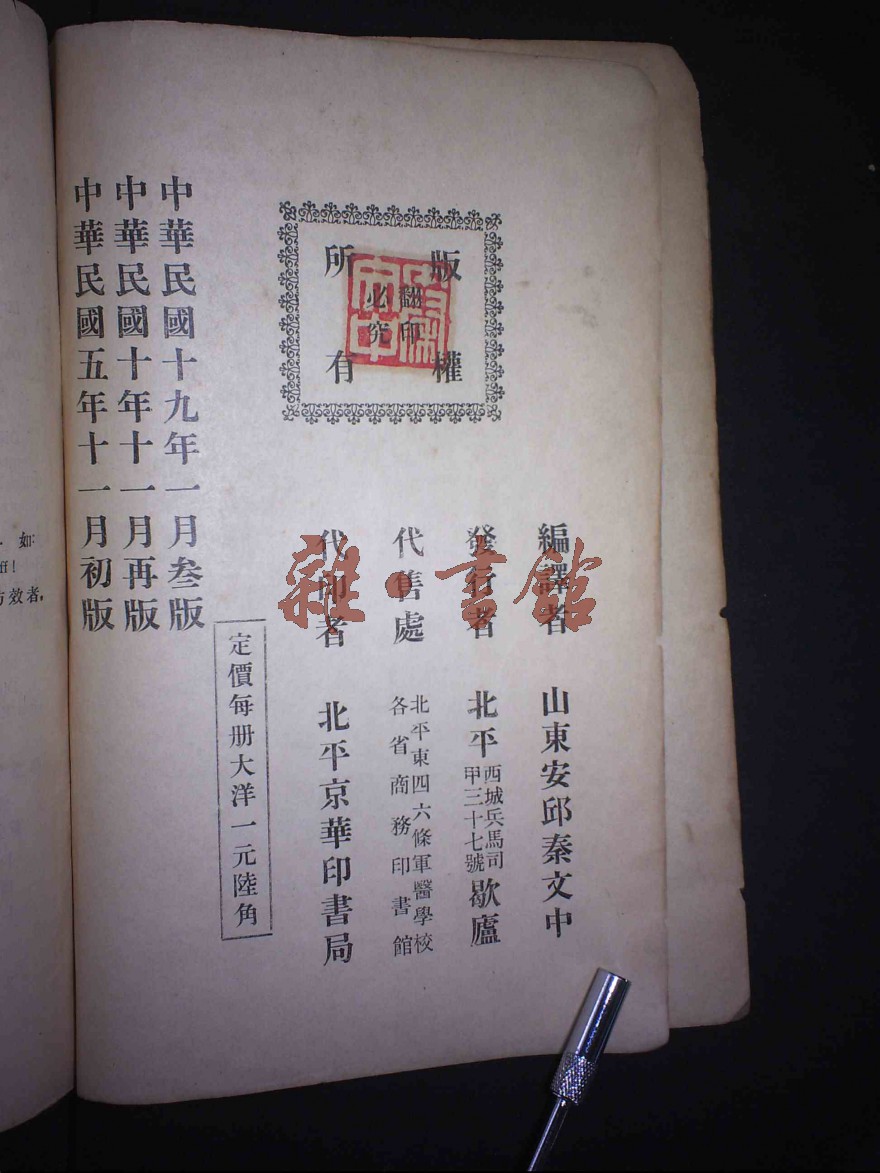 版權
所有
翻印
必究
編譯者 山東安邱秦文中
發行者 北平西城兵馬司甲三十七號歇廬
代售處 北平東四六條軍醫學校
各省商務印書館
代印者 北平京華印書局
定價每册大洋一元陸角
中華民國十九年一月叁版
中華民國十年十一月再版
中華民國五年十一月初版
雜·書館
如:
效者,